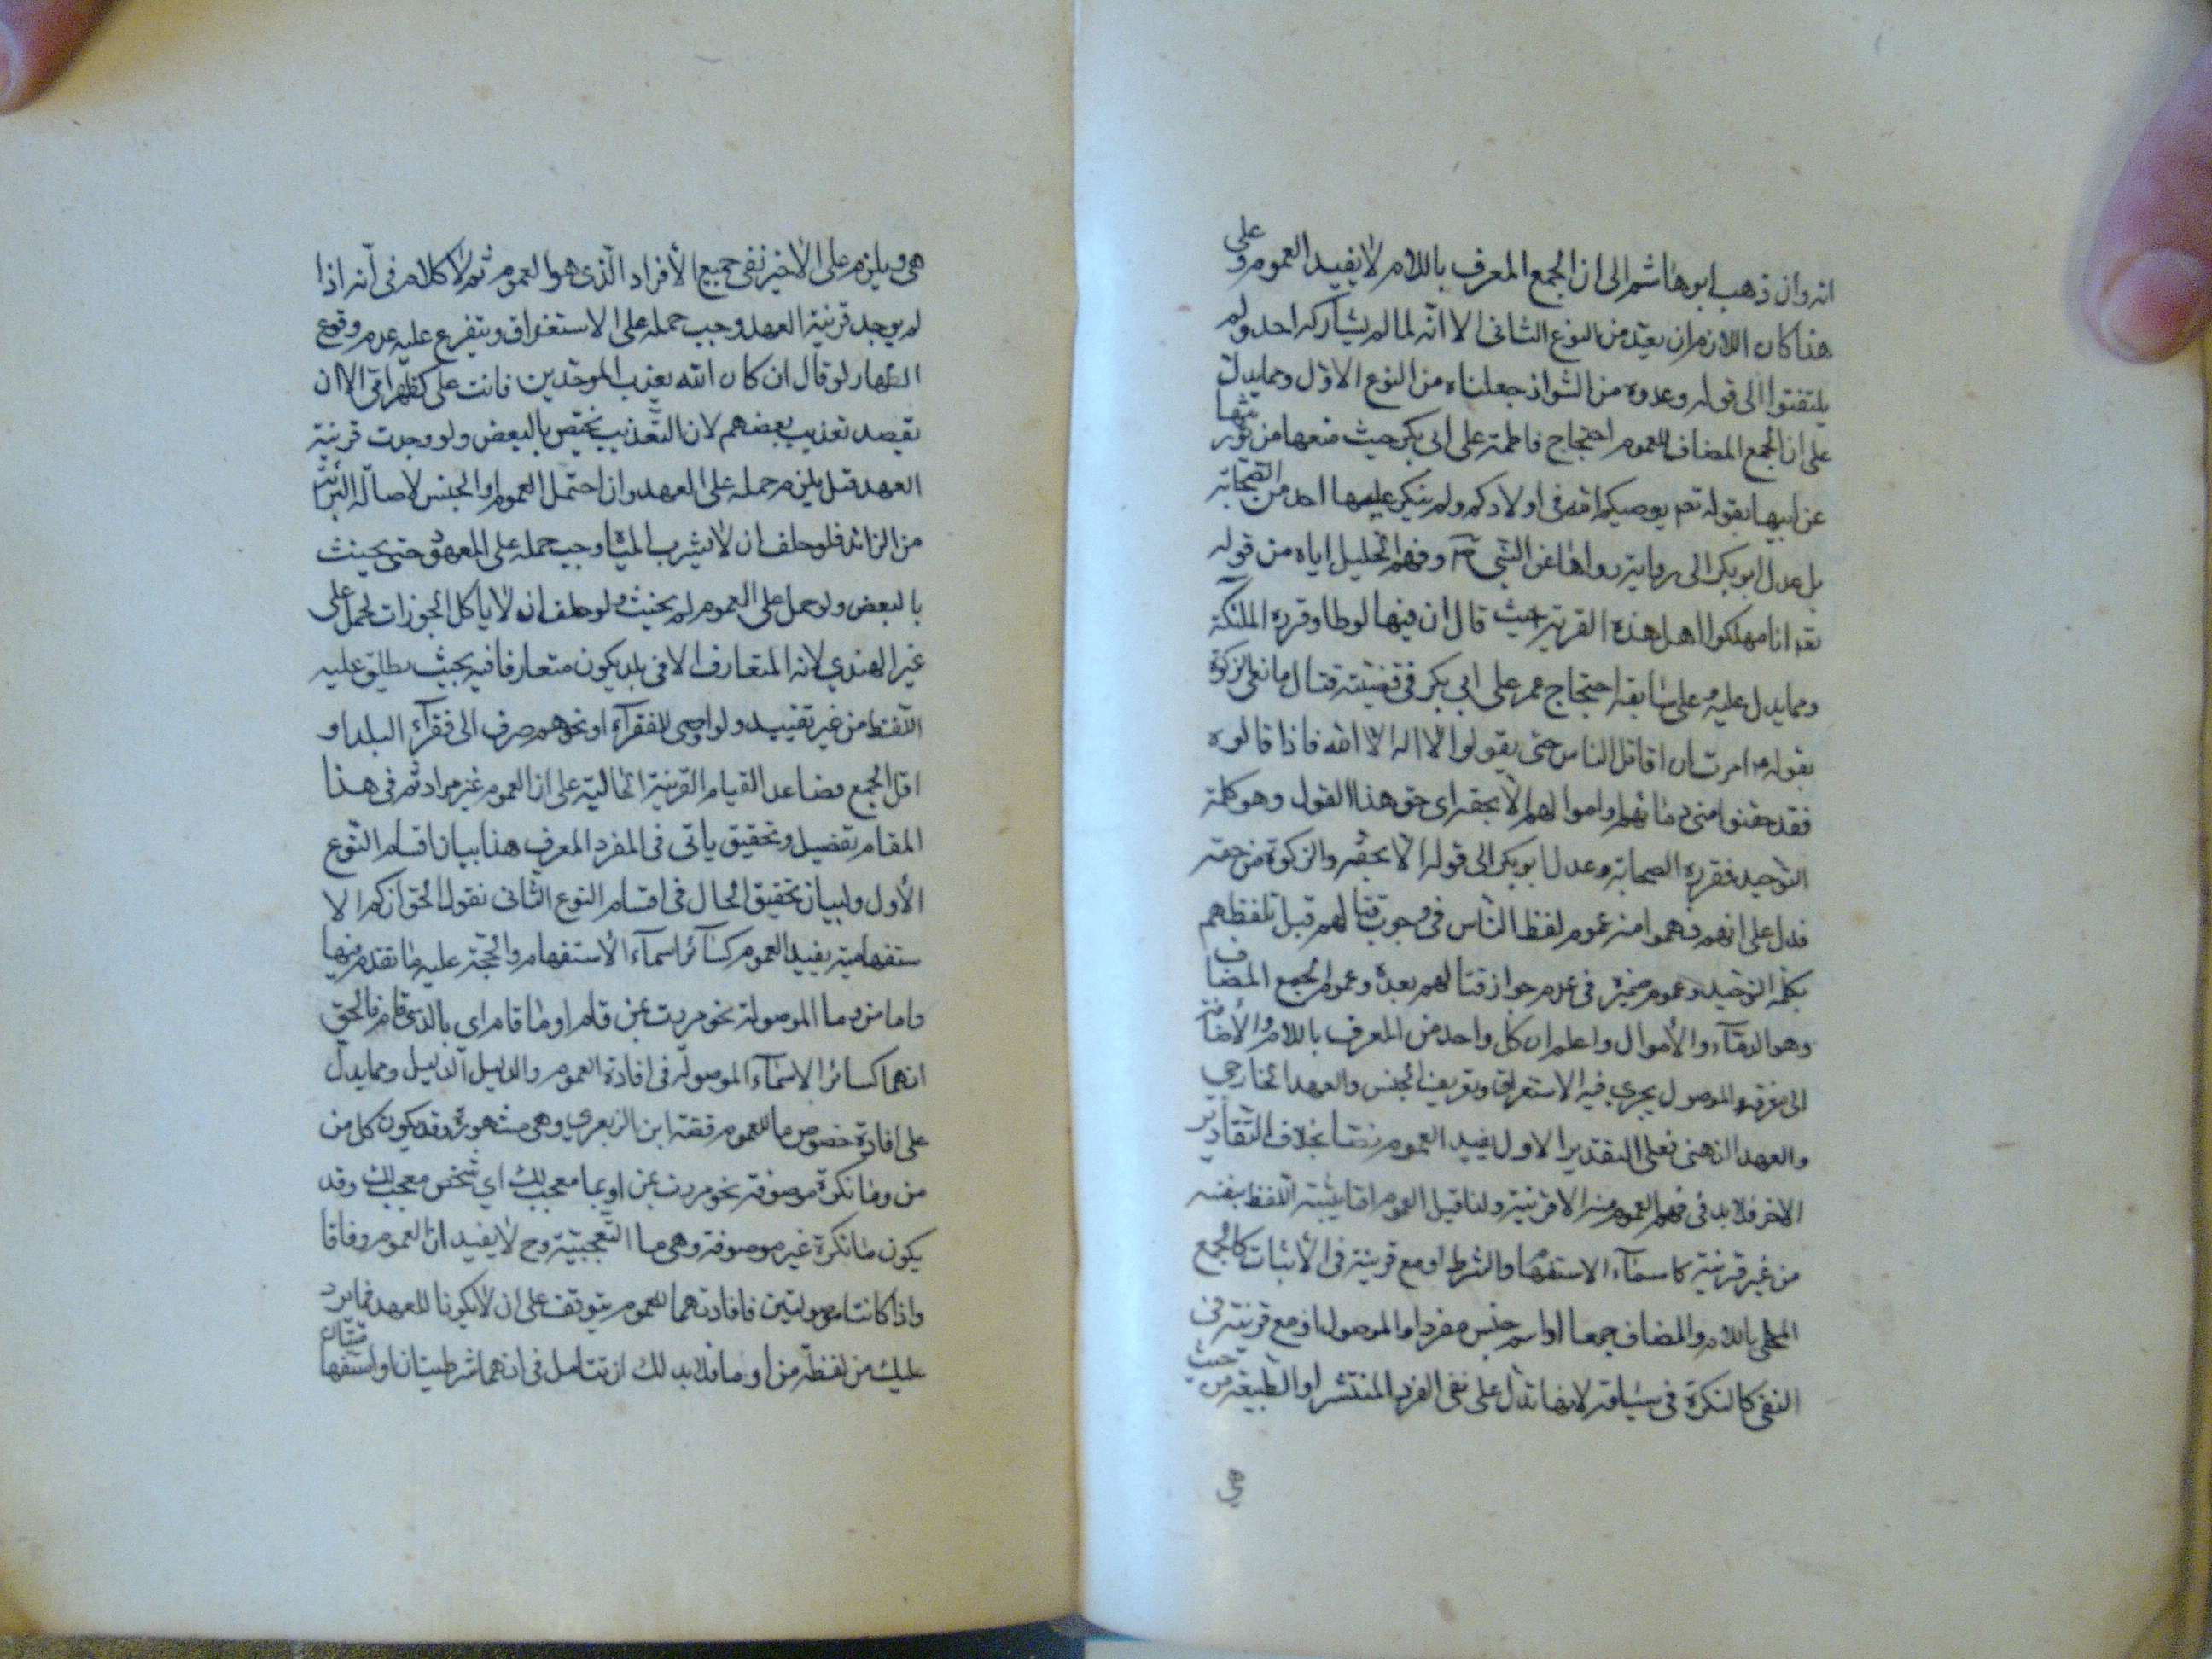 انه وأن ذهب ابو هاشم الى ان الجمع المعرف باللام لا يفيد العموم وعلى
هذا كان اللازم ان يعدّ من النوع الثانى الا انّه لما لم يشاركه احد ولم
يلتفتوا الى قوله وعدوه من الشواذ جعلناه من النوع الاوّل ومما يدلّ
على ان الجمع المضاف للعموم احتجاج فاطمة على ابى بكر حيث منعها من توريثها
عن ابيها بقوله تعم يوصيكم الله فى اولادكم ولم ينكر عليها احد من الصّحابة
بل عدل ابو بكر الى رواية رواها عن النّبي وفهم الخليل اياه من قوله
تعم انا مهلكوا اهل هذه القرية حيث قال ان فيها لوطا وقرره الملئكة
ومما يدل عليه وعلى سابقه احتجاج عمر على ابى بكر فى قضيّته قتال مانعى الزكوة
بقوله امرت ان اقاتل الناس حتى يقولوا لا اله الّا الله فاذا قالوه
فقد حقنوا منى دمائهم واموالهم الّا بحقه اى حق هذا القول وهو كلمة
التوحيد فقرره الصحابة وعدل ابو بكر الى قوله الّا بحقه والزكوة من حقه
فدل على انهم فهموا منه عموم لفظ النّاس فى وجوب قتالهم قبل تلفظهم
بكلمة التوحيد وعموم ضميره فى عدم جواز قتالهم بعده وعموم الجمع المضاف
وهو الدمآء والأموال واعلم ان كل واحد من المعرف باللام والأضافة
الى معرفة والموصول يجري فيه الاستغراق وتعريف الجنس والعهد الخارجي
والعهد الذهنى فعلى التقدير الاول يفيد العموم نصّا بخلاف التّقادير
الاخر فلا بد فى فهم العموم منه الا قرينة ولذا قيل العموم اما يثبته اللفظ بنفسه
من غير قرينة كاسمآء الاستفهام والشرط او مع قرينة فى الأثبات كالجمع
المحلى باللام والمضاف جمعا او اسم جنس مفرد او الموصول او مع قرينة فى
النفى كالنكرة فى سياقه لانها تدلّ على نفى الفرد المنتشر او الطّبيعة من حيث
هي
هى ويلزم على الأخير نفى جميع الأفراد الّذى هو العموم ثم لا كلام فى أنه اذا
لم يوجد قرينة العهد وجب حمله على الاستغراق ويتفرع عليه عدم وقوع
الظهار لو قال ان كان الله يعذب الموحّدين فانت على كظهر امّى الا ان
يقصد تعذيب بعضهم لان التّعذيب يختص بالبعض ولو وجدت قرينة
العهد قبل يلزم حمله على العهد وان احتمل العموم او الجنس لاصالة البرائة
من الزائد فلو حلف ان لا يشرب المياه وجب حمله على المعهود حتى يحنث
بالبعض ولو حمل على العموم لم يحنث ولو حلف ان لا ياكل الجوزات حمل على
غير الهندي لانه المتعارف الا فى بلد يكون متعارفا فيه بحيث يطلق عليه
اللّفظ من غير تقييد ولو اوصى للفقرآء او نحوهم صرف الى فقرآء البلد او
اقل الجمع فصاعدا لقيام القرينة الحاليّة على ان العموم غير مراد ثم فى هذا
المقام تفصيل وتحقيق ياتى فى المفرد المعرف هذا بيان اقسام النّوع
الأول ولبيان تحقيق الحال فى اقسام النوع الثّانى نقول الحق ان كم الا
ستفهامية يفيد العموم كسآئر اسمآء الأستفهام والحجّة عليه ما تقدم فيها
واما من وما الموصولة نحو مررت بمن قام او ما قام اى بالّذى قام فالحق
انهما كسائر الاسمآء الموصولة فى افادة العموم والدليل الدليل ومما يدلّ
على افادة خصوص ما للعموم قصّة ابن الزبعري وهى مشهورة وقد يكون كل من
من وما نكرة موصوفة نحو مررت بمن او بما معجب لك اي شخص معجب لك وقد
يكون ما نكرة غير موصوفة وهى ما التّعجبيّة وح لا يفيدان العموم وفاقا
واذا كانتا موصولتين فافادتهما للعموم يتوقف على ان لا يكونا للعهد فما يرد
عليك من لفظة من او ما فلا بد لك ان تتامل فى انهما شرطيتان او استفها